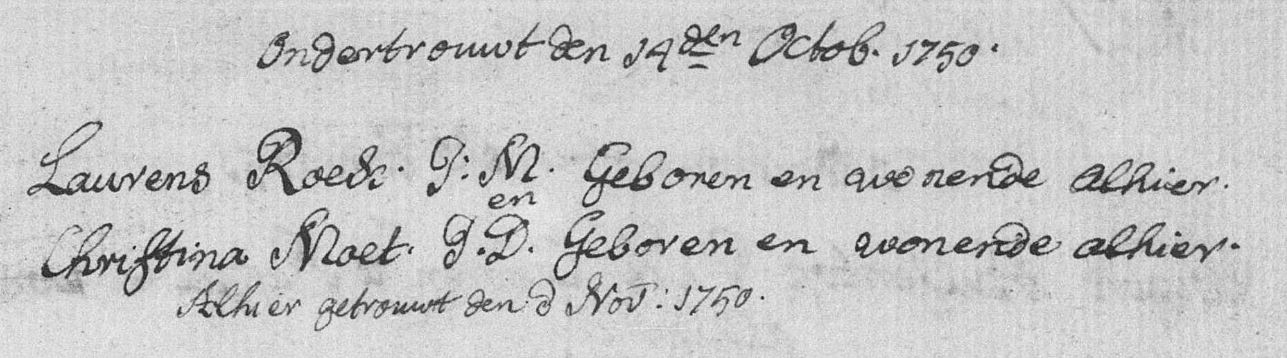 Ondertrouwt den 14den Octob. 1750.
Laurens Roeds. J: M. Geboren en wonende alhier.
en
Christina Moet. J. D. Geboren en wonende alhier.
Alhier getrouwt den Nov: 1750.